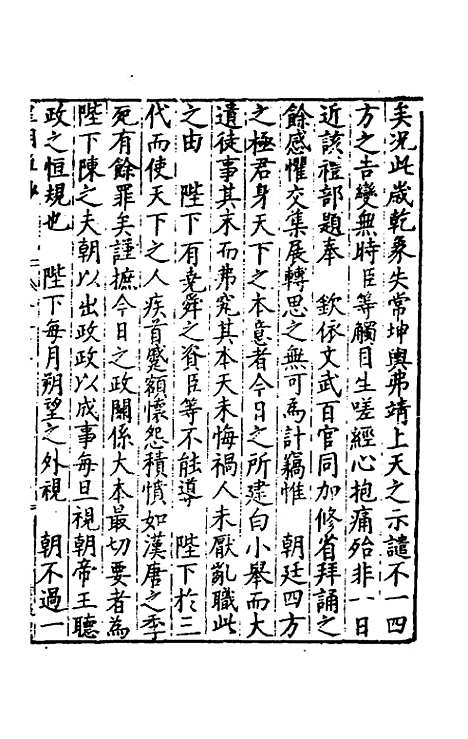 矣況此歲乾象失常坤輿弗靖上天之示譴不一四
方之告變無時臣等觸目生嗟經心抱痛殆非一日
近該禮部題奉　欽依文武百官同加修省拜誦之
餘感懼交集展轉思之無可為計竊惟　朝廷四方
之極君身天下之本意者今日之所建白小舉而大
遺徒事其末而弗究其本天未悔禍人未厭亂職此
之由　陛下有堯舜之資臣等不能導　陛下於三
代而使天下之人疾首蹙額懷怨積憤如漢唐之季
死有餘罪矣謹摭今日之政關係大本最切要者為
陛下陳之夫朝以出政政以成事每旦視朝帝王聽
政之恒規也　陛下每月朔望之外視　朝不過一